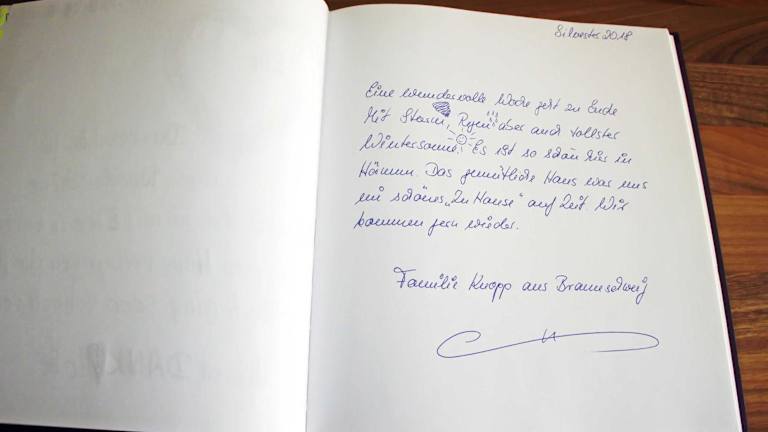 Silvester 2018
Eine wundervolle Woche geht zu Ende
Mit Sturm, Regen aber auch tollster
Wintersonne. Es ist so schön hier in
Hamm. Das gemütliche Haus war uns
ein schönes „Zu Hause" auf Zeit Wir
kommen gern wieder.
Familie Knopp aus Braunschweig
DANK